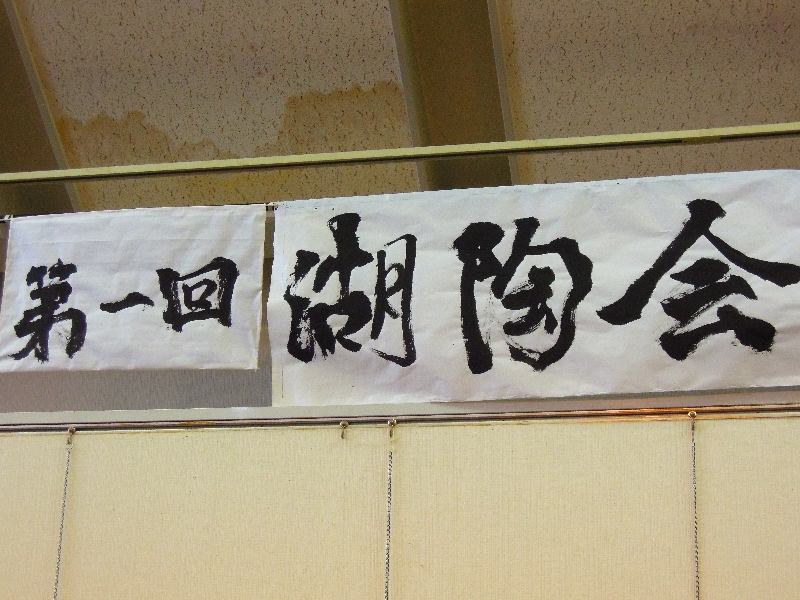 第一回 湖陶会